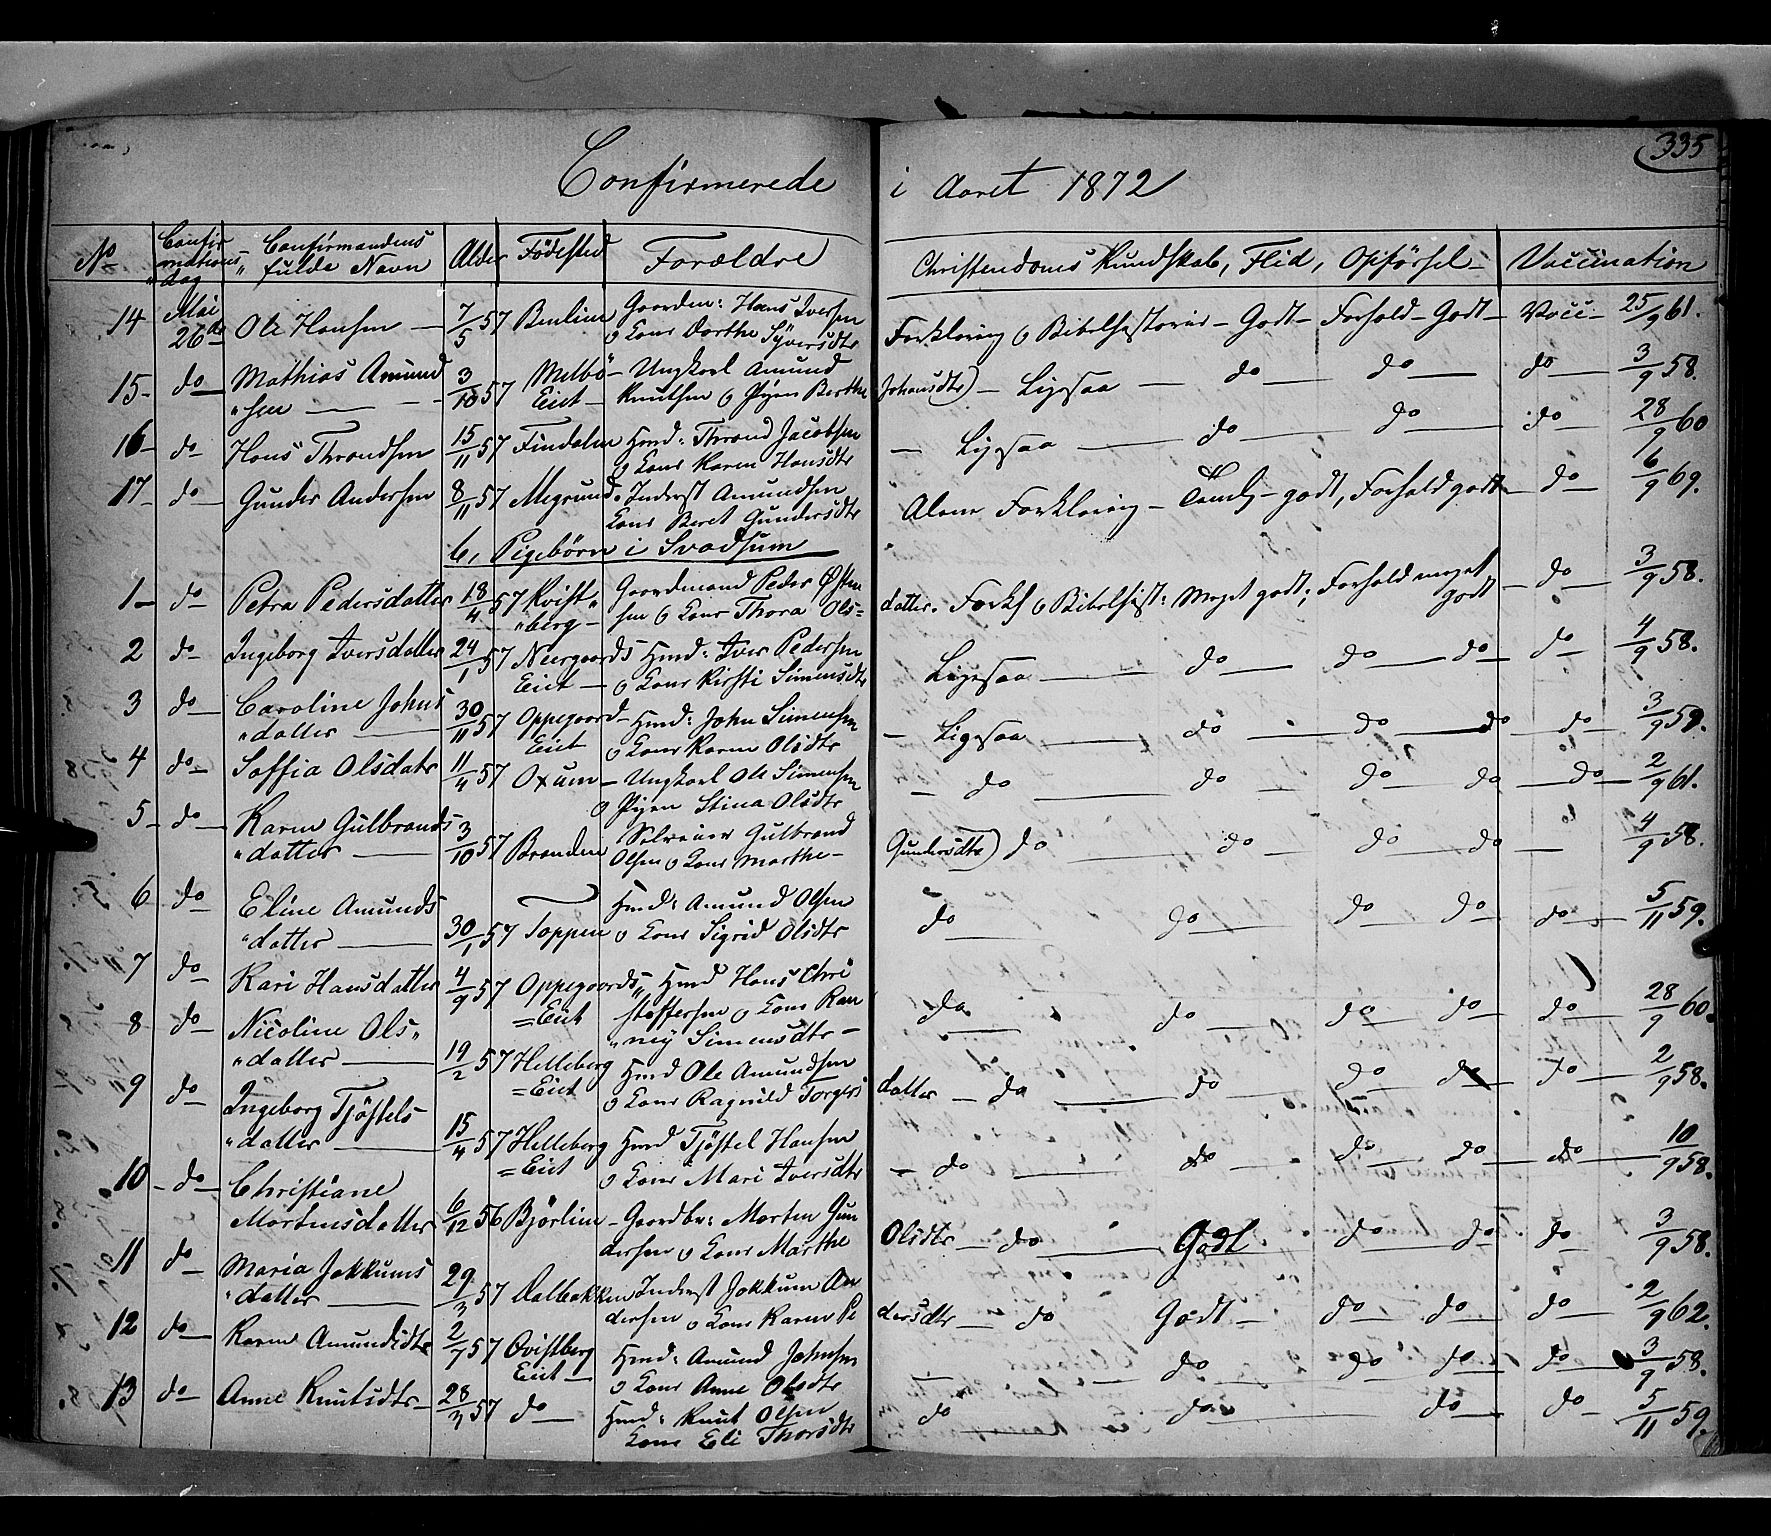 335
Confirmerede i Aaret 1872
No
Confir
mations
dag
Confirmandens
fulde Navn
Alder
Fødested
Forældre
Christendoms Kundskab, Flid, Opførsel
Vaccination
14 Mai 26de Ole Hansen 7/5 57 Gaarden: Hans Iversen Forklaring o Bibelhistorie - Godt - Forhold - Godt - Vacc - 25/9 61.
o Kone Dorthe Syversdtr
15 do Mathias Amund 3/10 57 Melbö Ungkarl Amund Johansdtr) - Ligesaa do do do 3/9 58.
"sen Eiet Knutsen o Pigen Berthe
16 do Hans Throndsen 15/11 57 Findalen Hmd: Thrond Jacobsen Ligesaa do do do 28/9 60
o Kone Karen Hansdtr
17 do Gunder Andersen 8/11 57 Megrund Inderst Amundsen Alene Forklaring - godt, Forhold godt - do - 6/9 69.
Kone Beret Gundersdtr
b, Pigebørn i Svadsum
1 do Petra Pedersdatter 18/4 57 Kvist" Gaardmand Peder Østen datter. Forkl o Bibelhist: Meget godt; Forhold meget godt - do 3/9 58.
"berg - sen o Kone Thora Ols=
2 do Ingeborg Iversdatter 24/1 57 Neergaards Hmd: Iver Pedersen Ligesaa do do do do 4/9 58.
Eiet - o Kone Kirsti Simensdtr
3 do Caroline Johns 30/11 57 Oppegaard Hmd: John Simensen - Ligesaa do do do do 3/9 59.
"datter Eiet o Kone Karen Olsdtr
4 do Soffia Olsdatr 11/4 57 Oxum - Ungkarl Ole Simensen - do do do do do 2/9 61.
o Pigen Stina Olsdtr
5 do Karen Gulbrands 3/10 57 Branden Gulbrand Gundersdtr) do do do do 4/9 58.
"datter Olsen o Kone Marthe -
6 do Eline Amunds Hmd: Amund Olsen do do do do do 5/11 59.
"datter 30/1 57 Toppen o Kone Sigrid Olsdtr
7 do Kari Hansdatter 4/9 57 Oppegaards" Hmd Hans Chri do do do do do 28/9 60.
=Eiet stoffersen o Kone Ran
8 do Nicoline Ols" "ney Simensdtr -
"datter 19/2 57 Helleberg Hmd Ole Amundsen datter - do do do do do 2/9 58.
=Eiet o Kone Ragnild Torgers
9 do Ingeborg Tjøstels
"datter 15/4 57 Helleberg Hmd Tjøstel Hansen - do do do do do 10/9 58.
=Eiet o Kone Mari Iversdtr
10 do Christiane
Mortensdatter 6/12 56 Bjørlien - Gaardbr: Morten Gun Olsdtr - do Godt do do do 3/9 58.
dersen o Kone Marthe
11 do Maria Jokkums 29/3 57 Dalbakken Inderst Jokkum An dersdtr - do Godt - do do do 2/9 62.
"datter dersen o Kone Karen Pe
12 do Karen Amundsdtr 2/7 57 Qvistberg Hmd: Amund Johnsen - do do do do 3/9 58.
Eiet - o Kone Anne Olsdtr
13 do Anne Knutsdtr 28/3 57 do Hmd: Knut Olsen do do do do 5/11 59.
Kone Eli Thorsdtr